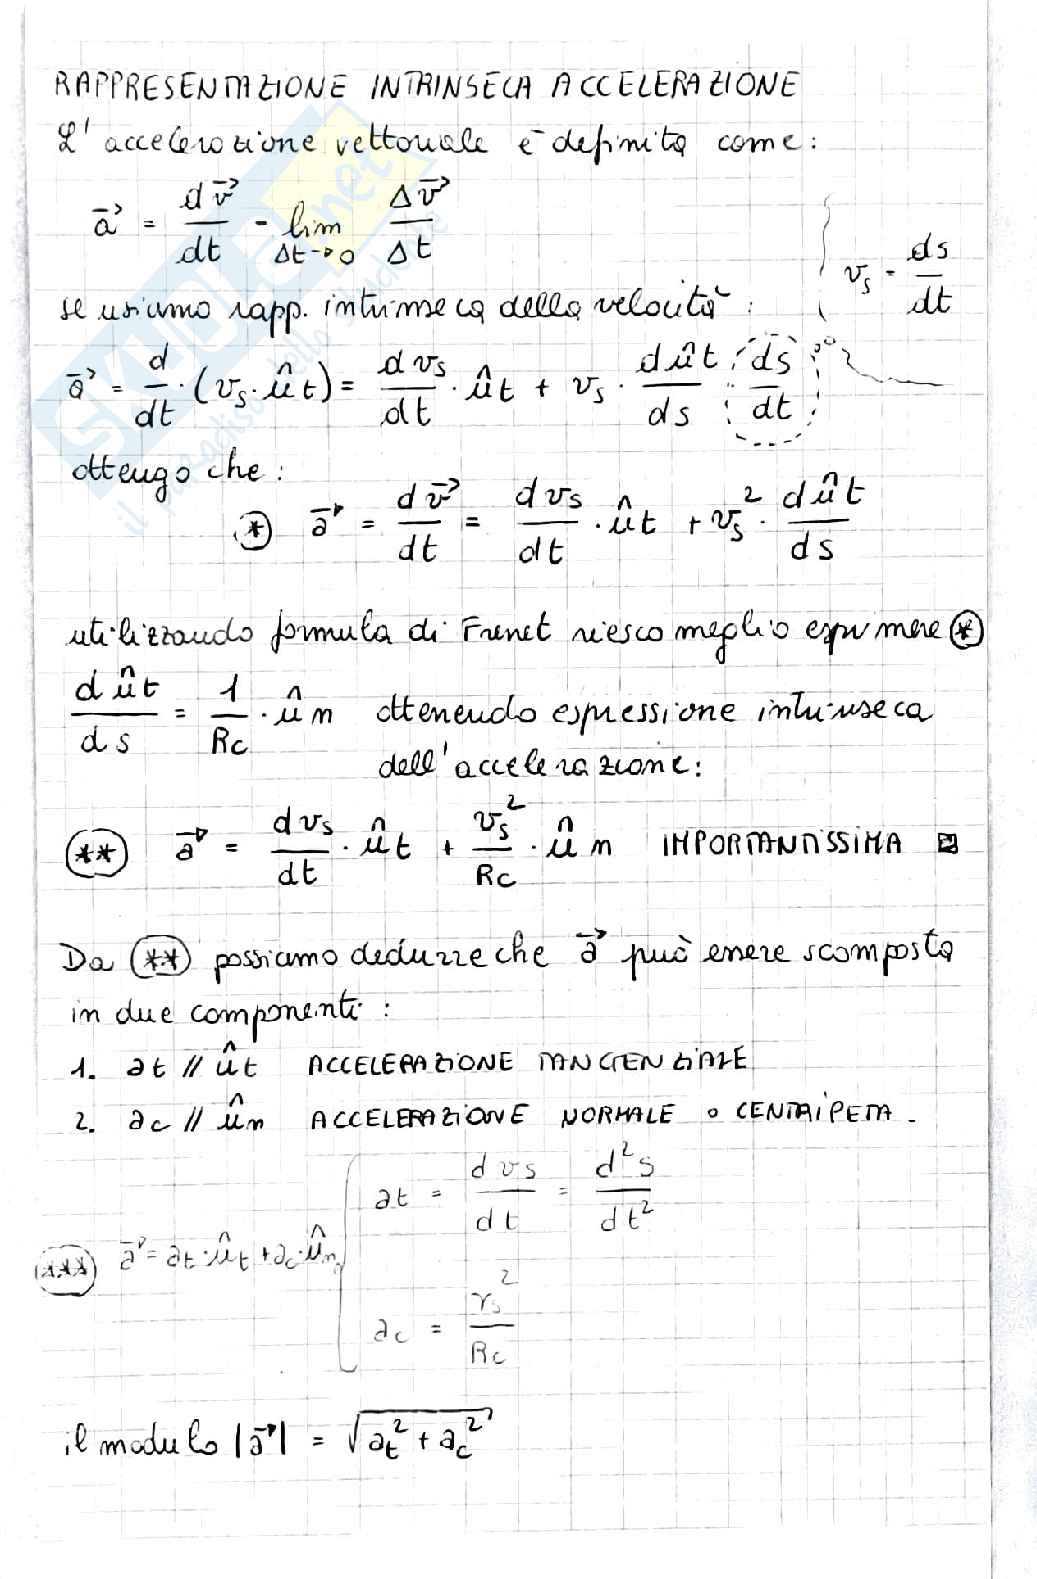 RAPPRESENTAZIONE INTRINSECA ACCELERAZIONE
L'accelerazione vettoriale è definita come:
a⃗ = dv⃗/dt = lim Δt→0 Δv⃗/Δt
v_s = ds/dt
se usiamo rapp. intrinseca della velocità:
a⃗ = d/dt · (v_s · û_t) = dv_s/dt · û_t + v_s · dû_t/ds · ds/dt
ottengo che:
(*) a⃗ = dv⃗/dt = dv_s/dt · û_t + v_s² · dû_t/ds
utilizzando formula di Frenet riesco meglio esprimere (*)
dû_t/ds = 1/Rc · û_n ottenendo espressione intrinseca
dell'accelerazione:
(**) a⃗ = dv_s/dt · û_t + v_s²/Rc · û_n IMPORTANTISSIMA
Da (**) possiamo dedurre che a⃗ può essere scomposta
in due componenti:
1. a_t // û_t ACCELERAZIONE TANGENZIALE
2. a_c // û_n ACCELERAZIONE NORMALE o CENTRIPETA.
(***) a⃗ = a_t · û_t + a_c · û_n
a_t = dv_s/dt = d²s/dt²
a_c = v_s²/Rc
il modulo |a⃗| = √(a_t² + a_c²)
SKUOLA.net
il paradiso dello studente